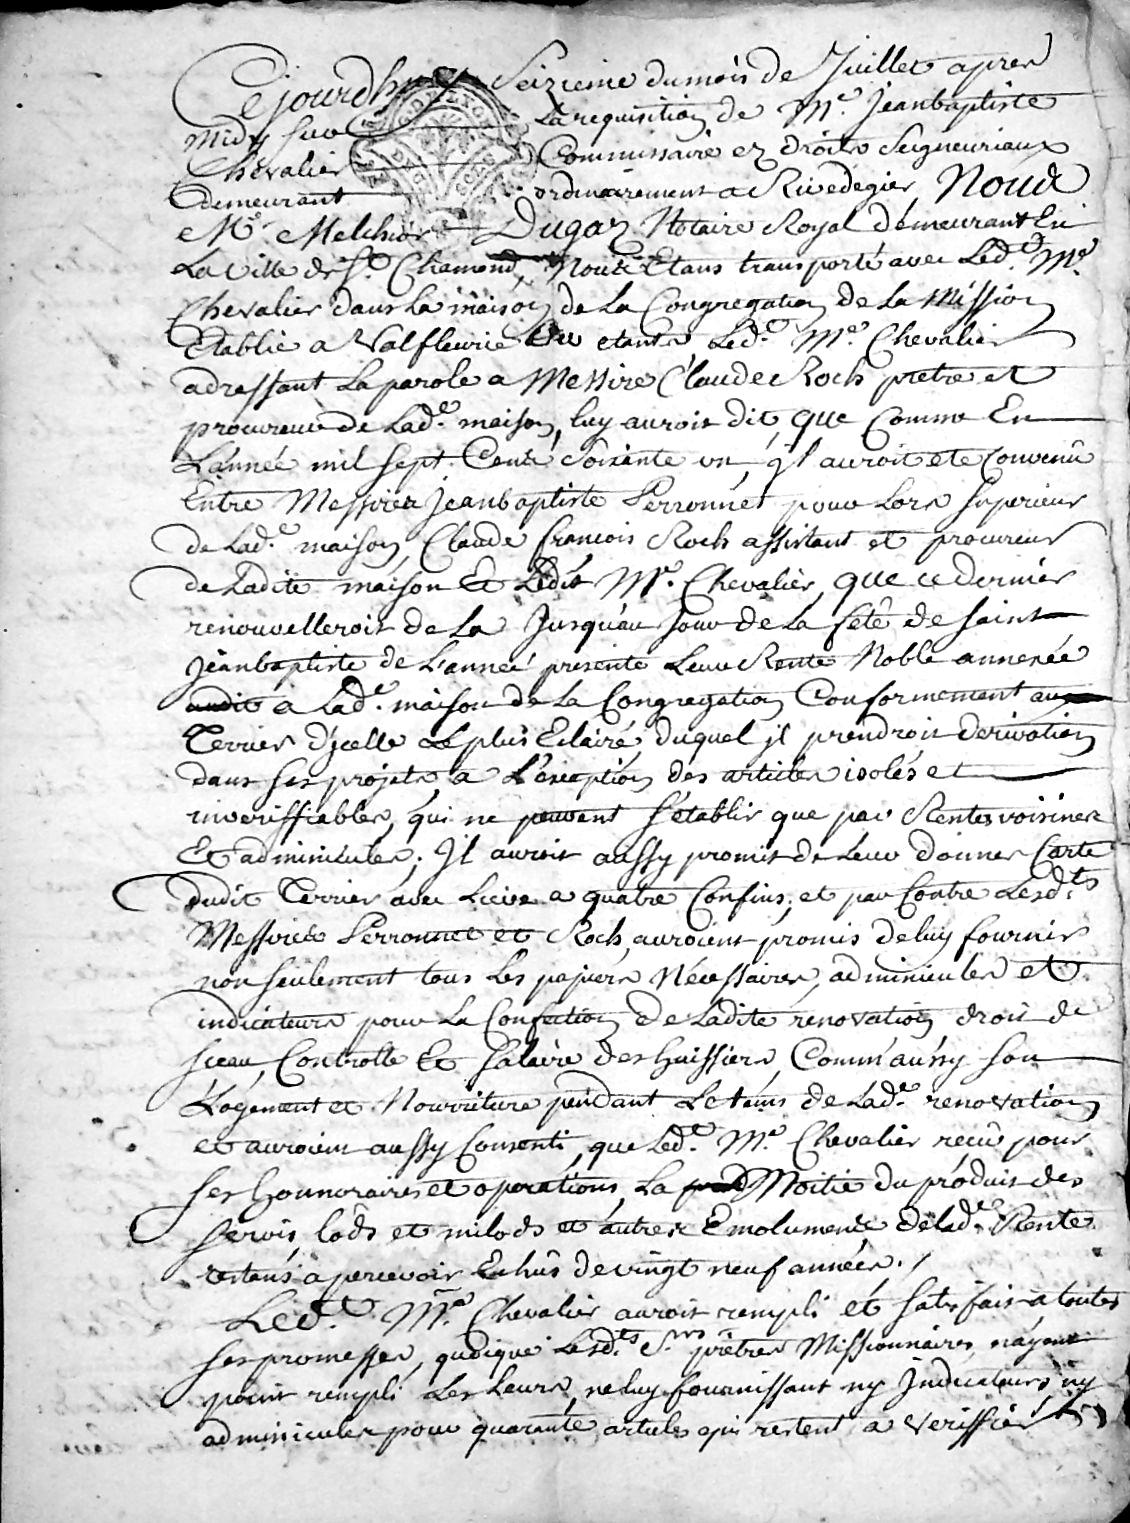 Cejourdhuy Seizieme du mois de Juillet apres
Midy sur La requisition de Me. Jeanbaptiste
Chevalier Commissaire ez droits Seigneuriaux
demeurant ordinairement a Rivedegier, Nous
Me. Melchior Dugaz Notaire Royal demeurant En
La ville de St. Chamond, Nous Etans transporté avec Led.t Me.
Chevalier dans la maison de La Congregation de La Mission
Etablie a Valfleurie Ou etants Led.t Me. Chevalier
adressant La parole a Messire Claude Roch pretre et
procureur de Lad.e maison, luy auroit dit, que Comme En
L'année mil Sept Cents Soixante un, jl auroit ete Convenû
Entre Messires Jeanbaptiste Perronnet pour Lors Superieur
de Lad.e maison, Claude francois Roch assistant et procureur
de Ladite maison Et Ledit Me. Chevalier, que ce dernier
renouvelleroit de La Jusqu'au Jour de La fete de Saint
Jeanbaptiste de L'année presente Leur Rente Noble annexée
a Lad.e maison de La Congregation Conformement au
Terrier d'jcelle Le plus Eclairé duquel jl prendroit derivation
dans Ses projets, a L'exception des articles isolés et
inveriffiables, qui ne peuvent S'etablir que par Rentes voisines
Et adminicules; Jl auroit aussy promis de Leur donner Carte
dudit Terrier avec Lieve a quatre Confins; et par Contre Lesd.ts
Messires Perronnet et Roch, auroient promis de luy fournir
non Seulement tous Les papiers Nécessaires, adminicules et
indicateurs pour La Confection de Ladite renovation droit de
Sceau, Controlle Et Salaire des huissiers, Comm'aussy Son
Logement et Nourriture pendant Le tems de Lad.e renovation
et auroient aussy Consenti, que Led.t Me. Chevalier reçû pour
Ses honnoraires et operations, La Moitié du produit des
Servis, lods et milods et autres Emolumens de Lad.e Rente
restans a percevoir Echûs de vingt neuf années. /
Led.t Me. Chevalier auroit rempli et Satisfait a toutes
Ses promesses, quoique Lesd.ts Srs. prêtres Missionnaires, n'ayent
point rempli Les Leurs, ne luy fournissant ny Indicateurs, ny
adminicules pour quarante articles qui restent a veriffier